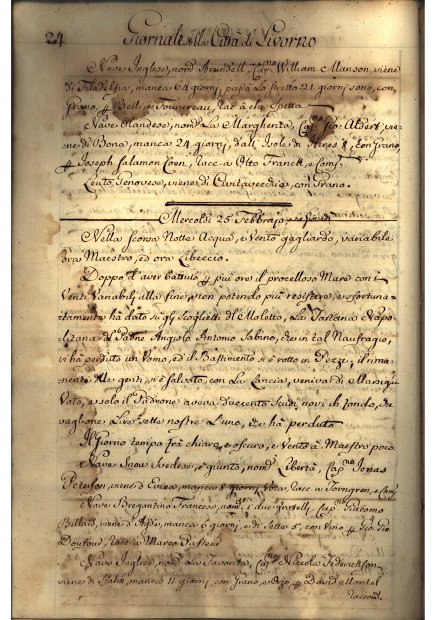 24 Giornale della Città di Livorno
Nave Inglese, nom.ª Arundell Cap.no William Manson, viene
di Filadelfia, manca 64 giorni, passò lo stretto 21 giorni sono, con
Grano, Belli, e a chi spetta
Nave Olandese, nom.ª La Margherita, Cap.no Gio: Albert, vie-
ne di Bona, manca 24 giorni, dall' Isole di 8, con Grano,
Joseph Salamon Coen, racc. a Otto Franck, e Comp.
Leuto Genovese, viene di Civitavecchia, con Grano.
Mercoldì 25 Febbrajo
Nella scorsa Notte Acqua, e Vento gagliardo, variabile
ora Maestro, ed ora Libeccio.
Doppo d'aver battuto più ore il procelloso Mare con i
Venti Variabili, alla fine, non potendo più resistere, sfortuna-
tamente hà dato sù gli Scoglietti del Moletto, La Tartana Napo-
litana di Padron Angiolo Antonio Sabino, che in tal Naufragio,
vi hà perduto un Uomo, ed il Bastimento si è rotto in Pezzi; il rima-
nente delle genti, si è salvato, con La Lancia, veniva di Marsiglia
Voto, e solo il Padrone aveva Duecento Scudi novi di fondo, che
vaglione Lire sette nostre L'uno, che hà perduto
Il Giorno tempo frà chiaro, e oscuro, e Vento à Maestro poco
Nave Snow Svedese, è giunto, nom.ª Libertà, Cap.no Jonas
Peterson, viene d' manca 8 giorni, racc. a Jorngren, e Comp.
Nave Bregantino Francese, nom.ª i due Fratelli, Cap.no Giacomo
Billard, viene d'Agde, manca 6 giorni, e di 5, con Vino Gio: Gio:
Doutour, racc. a Marco
Nave Inglese, nom.ª La Favorita, Cap.no Niccola Federickson,
viene di manca 11 giorni, con Grano, e Orzo David Montel
raccom.